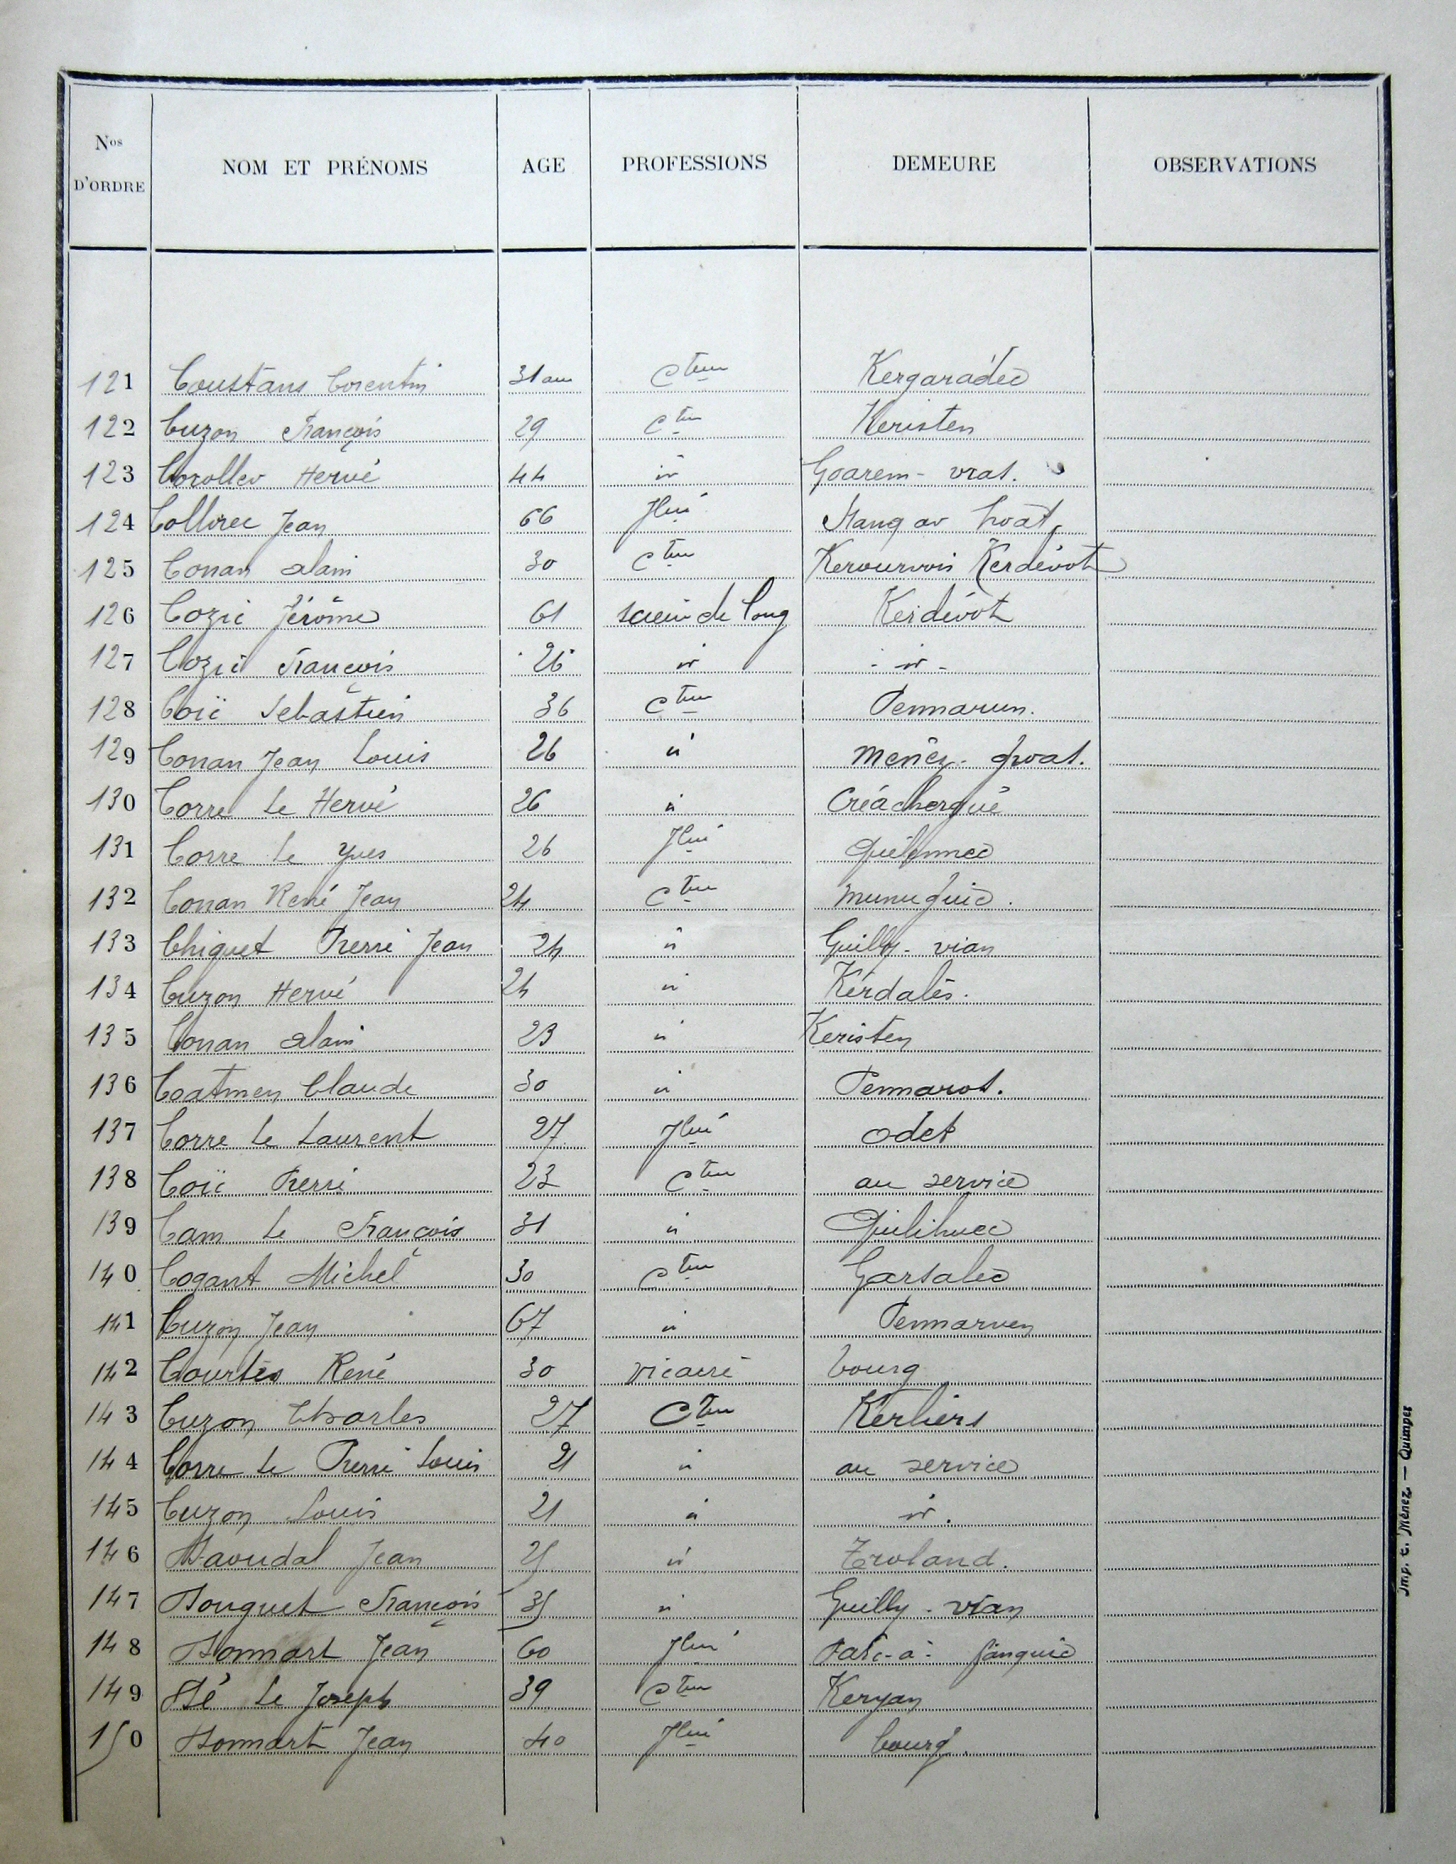 Nos D'ORDRE NOM ET PRÉNOMS AGE PROFESSIONS DEMEURE OBSERVATIONS
121 Coustans Corentin 31 ans Cteur Kergaradec
122 Cuzon François 29 Cteur Keristen
123 Coroller Hervé 44 id Goarem-vras.
124 Collorec Jean 66 Jlier Stang ar hoat
125 Conan alain 30 Cteur Kervurvois Kerdévot
126 Cozic Jérôme 61 scieur de long Kerdévot
127 Cozic François 26 id - id -
128 Coïc Sébastien 36 Cteur Pennarun.
129 Conan Jean Louis 26 id Menez-groas.
130 Corre le Hervé 26 id Créachergué
131 Corre le Yves 26 Jlier
132 Conan René Jean 24 Cteur Munuguic.
133 Chiquet Pierre Jean 24 id Guilly-vian
134 Cuzon Hervé 24 id Kerdalès.
135 Conan alain 23 id Keristen
136 Coatmen Claude 30 id Pennaros.
137 Corre le Laurent 27 Jlier odet
138 Coïc Pierre 23 Cteur au service
139 Cam le François 31 id Quilihuec
140 Cogant Michel 30 Cteur Garsalec
141 Cuzon Jean 67 id Pennarven
142 Courtès René 30 vicaire bourg
143 Cuzon Charles 27 Cteur Kerliers
144 Corre le Pierre Louis 21 id au service
145 Cuzon Louis 21 id id.
146 Daoudal Jean 25 id Troland.
147 Douguet François 35 id Guilly-vian
148 Donnart Jean 60 Jlier Parc-a-
149 Dé le Joseph 39 Cteur Keryan
150 Donnart Jean 40 Jlier bourg.
Imp. E. Ménez — Quimper